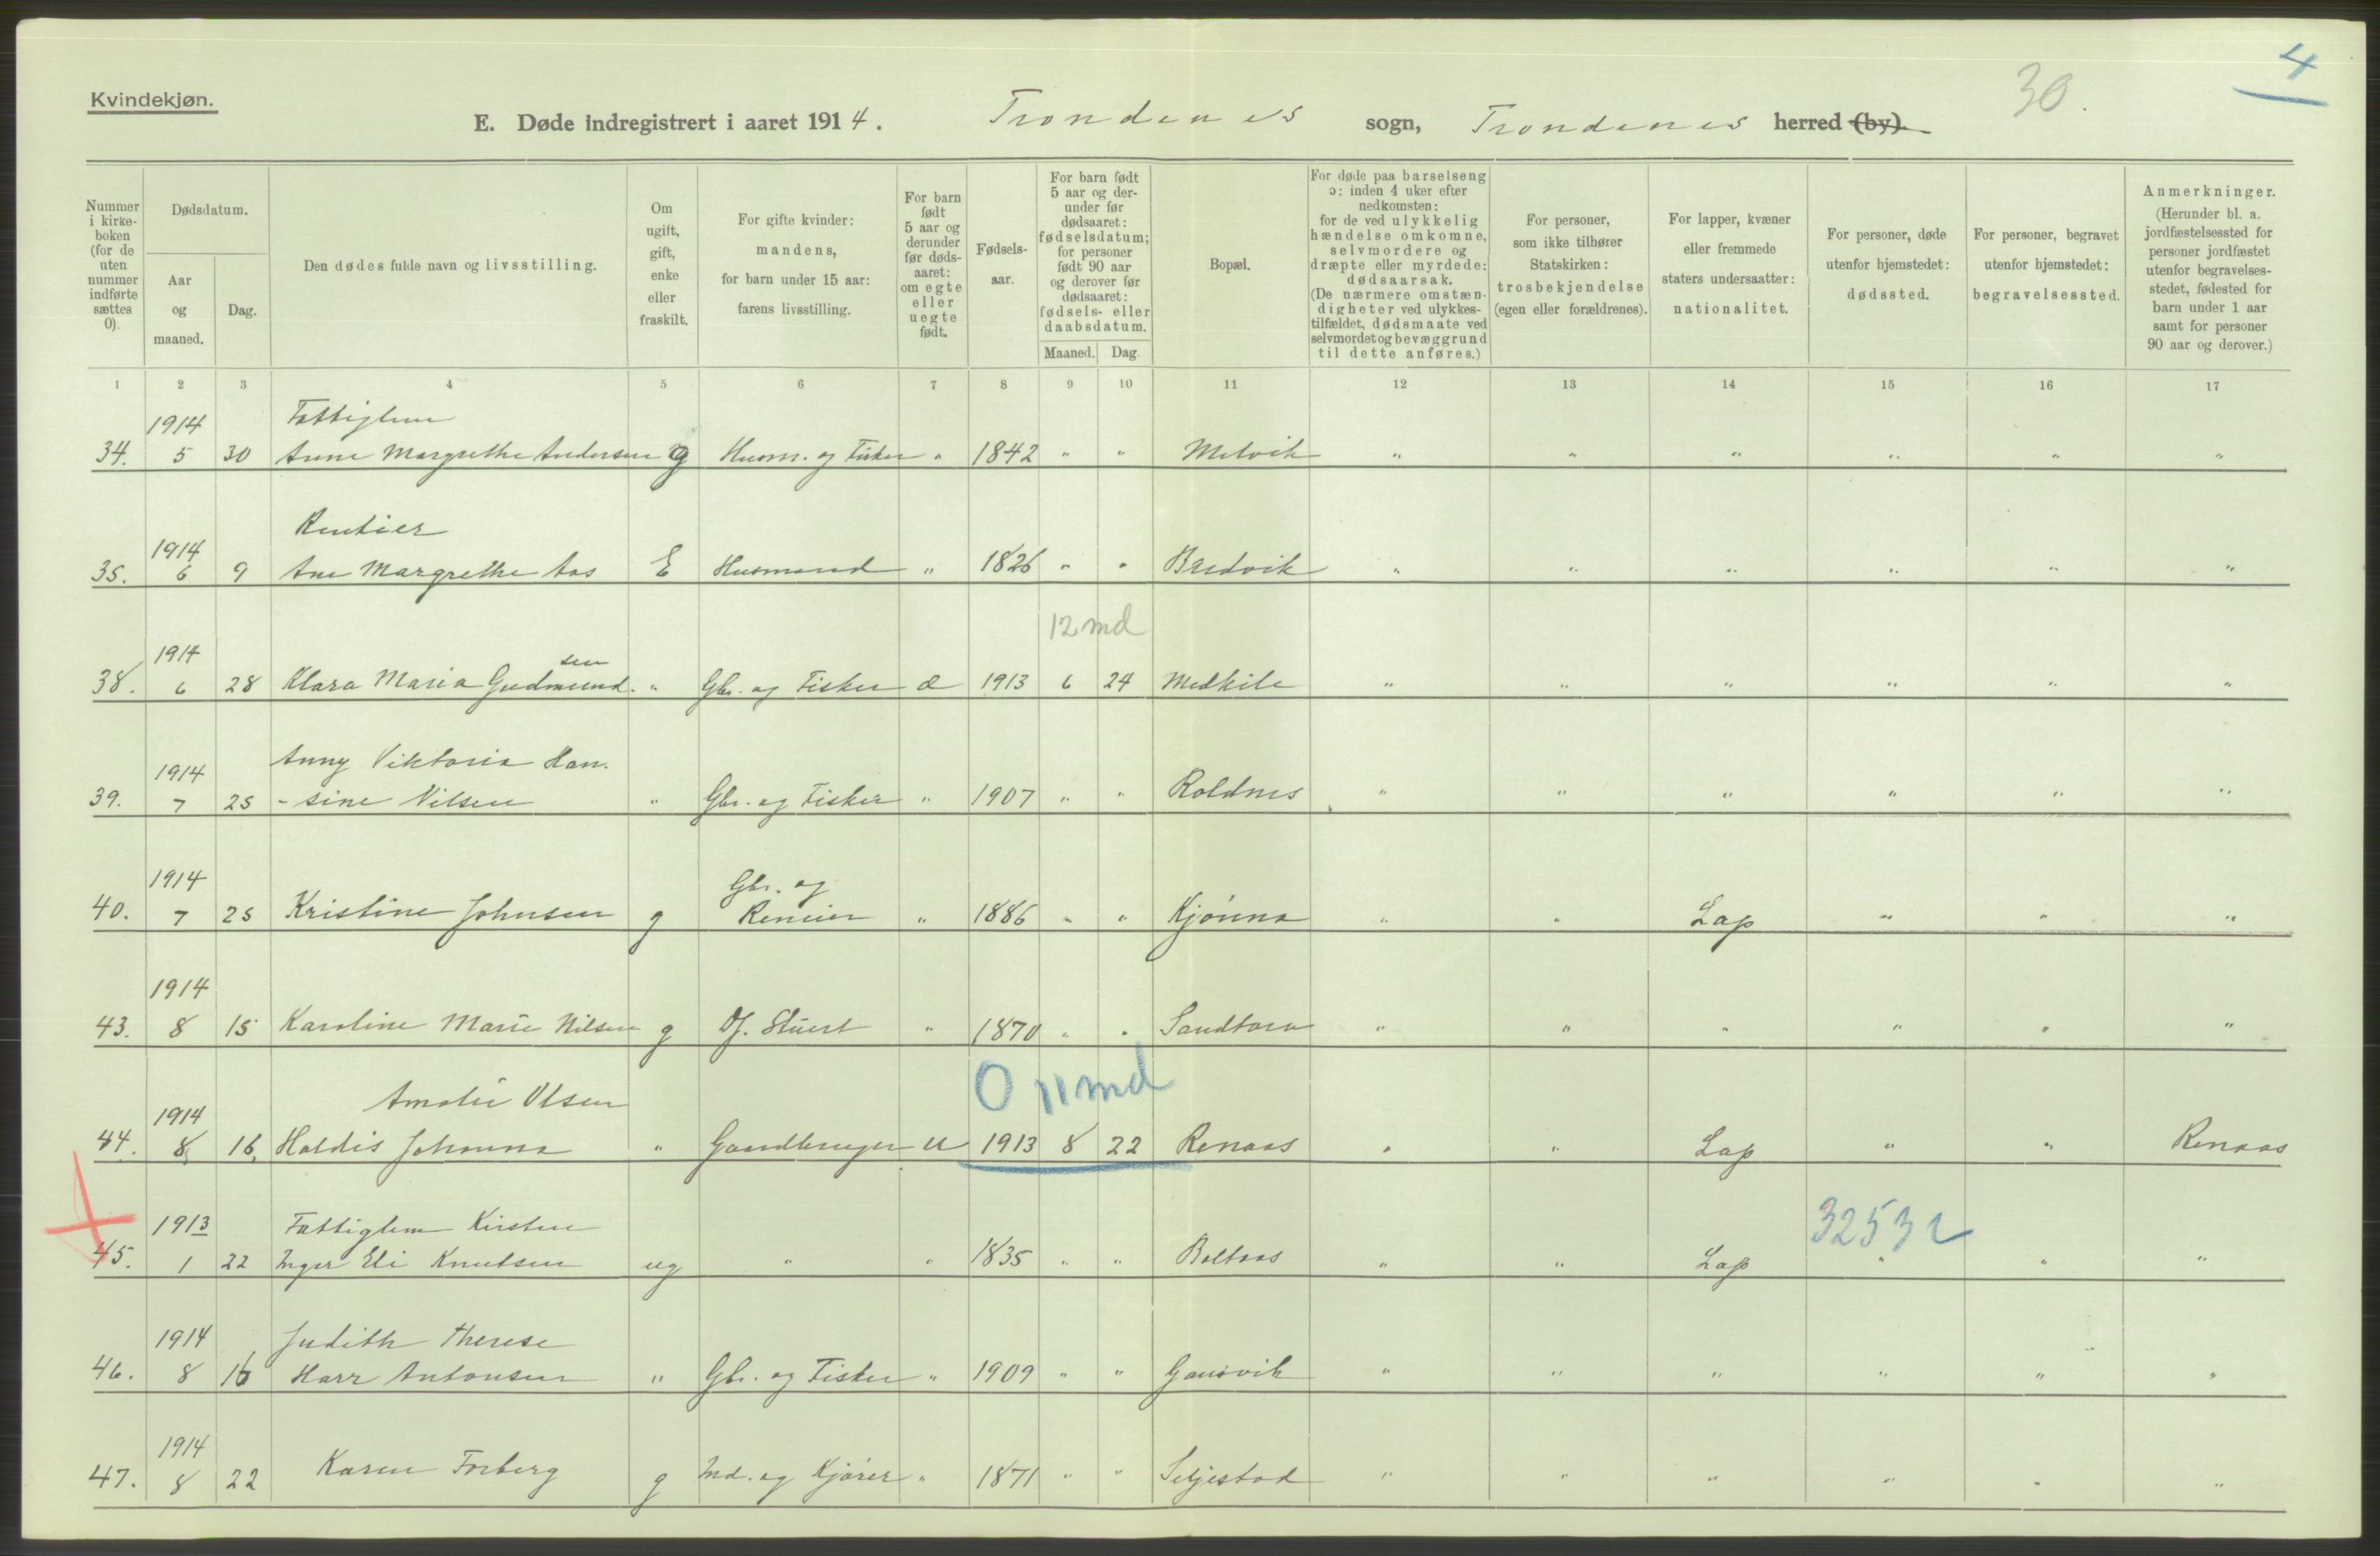 4
30.
Kvindekjøn.
E. Døde indregistrert i aaret 1914. Trondenes sogn, Trondenes herred (by).
Nummer i kirke-boken (for de uten nummer indførte sættes 0).
Dødsdatum.
Aar og maaned.
Dag.
Den dødes fulde navn og livsstilling.
Om ugift, gift, enke eller fraskilt.
For gifte kvinder: mandens, for barn under 15 aar: farens livsstilling.
For barn født 5 aar og derunder før døds-aaret: om egte eller uegte født.
Fødsels-aar.
For barn født 5 aar og der-under før dødsaaret: fødselsdatum; for personer født 90 aar og derover før dødsaaret: fødsels- eller daabsdatum.
Maaned. Dag.
Bopæl.
For døde paa barselseng ɔ: inden 4 uker efter nedkomsten; for de ved ulykkelig hændelse omkomne, selvmordere og dræpte eller myrdede: dødsaarsak. (De nærmere omstæn-digheter ved ulykkes-tilfældet, dødsmaate ved selvmordet og bevæggrund til dette anføres.)
For personer, som ikke tilhører Statskirken: trosbekjendelse (egen eller forældrenes).
For lapper, kvæner eller fremmede staters undersaatter: nationalitet.
For personer, døde utenfor hjemstedet: dødssted.
For personer, begravet utenfor hjemstedet: begravelsessted.
Anmerkninger. (Herunder bl. a. jordfæstelsessted for personer jordfæstet utenfor begravelses-stedet, fødested for barn under 1 aar samt for personer 90 aar og derover.)
1 2 3 4 5 6 7 8 9 10 11 12 13 14 15 16 17
1914 Fattiglem
34. 5 30 Anne Margrethe Andersen g Husm. og Fisker " 1842 " " Melvik " " " " " "
1914
35. 6 9 Ane Margrethe Aas E Husmand " 1826 " " Bredvik " " " " " "
12 md
1914 sen
38. 6 28 Klara Maria Gudmund. " Gbr. og Fisker æ 1913 6 24 Medkile " " " " " "
1914 Anny Viktoria Han.
39. 7 25 - sine Nilsen " Gbr. og Fisker " 1907 " " Roldnes " " " " " "
1914 Gbr. og
40. 7 25 Kristine Johnsen g " 1886 " " Kjønna " " Lap " " "
1914
43. 8 15 Karoline Marie Nilsen g " 1870 " " Sandtorv " " " " " "
0 11 md
1914 Amalie Olsen
44. 8 16 Haldis Johanna " Gaardbruger u 1913 8 22 Renaas " " Lap " " Renaas
1913 Fattiglem Kirsten 32532
45. 1 22 Inger Eli Knutsen ug " " 1835 " " Boltaas " " Lap " " "
1914 Judith Therese
46. 8 16 Harr Antonsen " Gbr. og Fisker " 1909 " " Gausvik " " " " " "
1914
47. 8 22 Karen Forberg g " 1871 " " Seljestad " " " " " "